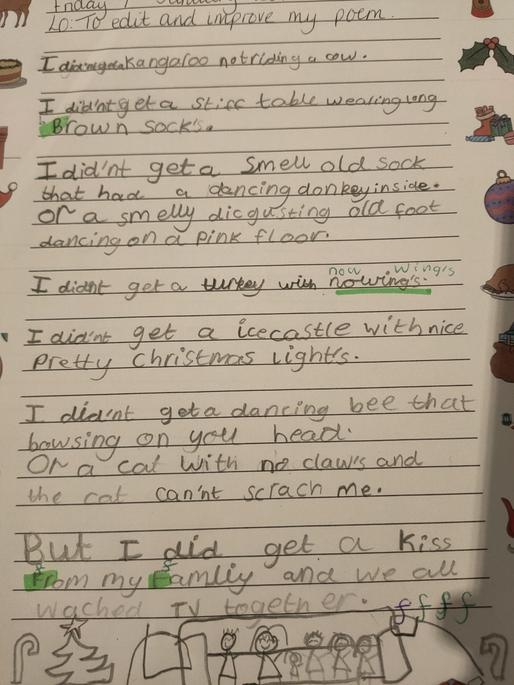 LO: To edit and improve my poem.
I did'nt get a Kangaroo not riding a cow.
I did'nt get a sticc table wearing long
Brown sock's.
I did'nt get a smell old sock
that had a dancing donkey inside.
Or a smelly dicgusting old foot
dancing on a pink floor.
now wing's
I didn't get a turkey with nowing's.
I did'nt get a icecastle with nice
pretty christmas light's.
I did'nt get a dancing bee that
bowsing on you head.
Or a cat with no claw's and
the cat can'nt scrach me.
But I did get a kiss
From my Famliy and we all
wached TV together.
f f f f